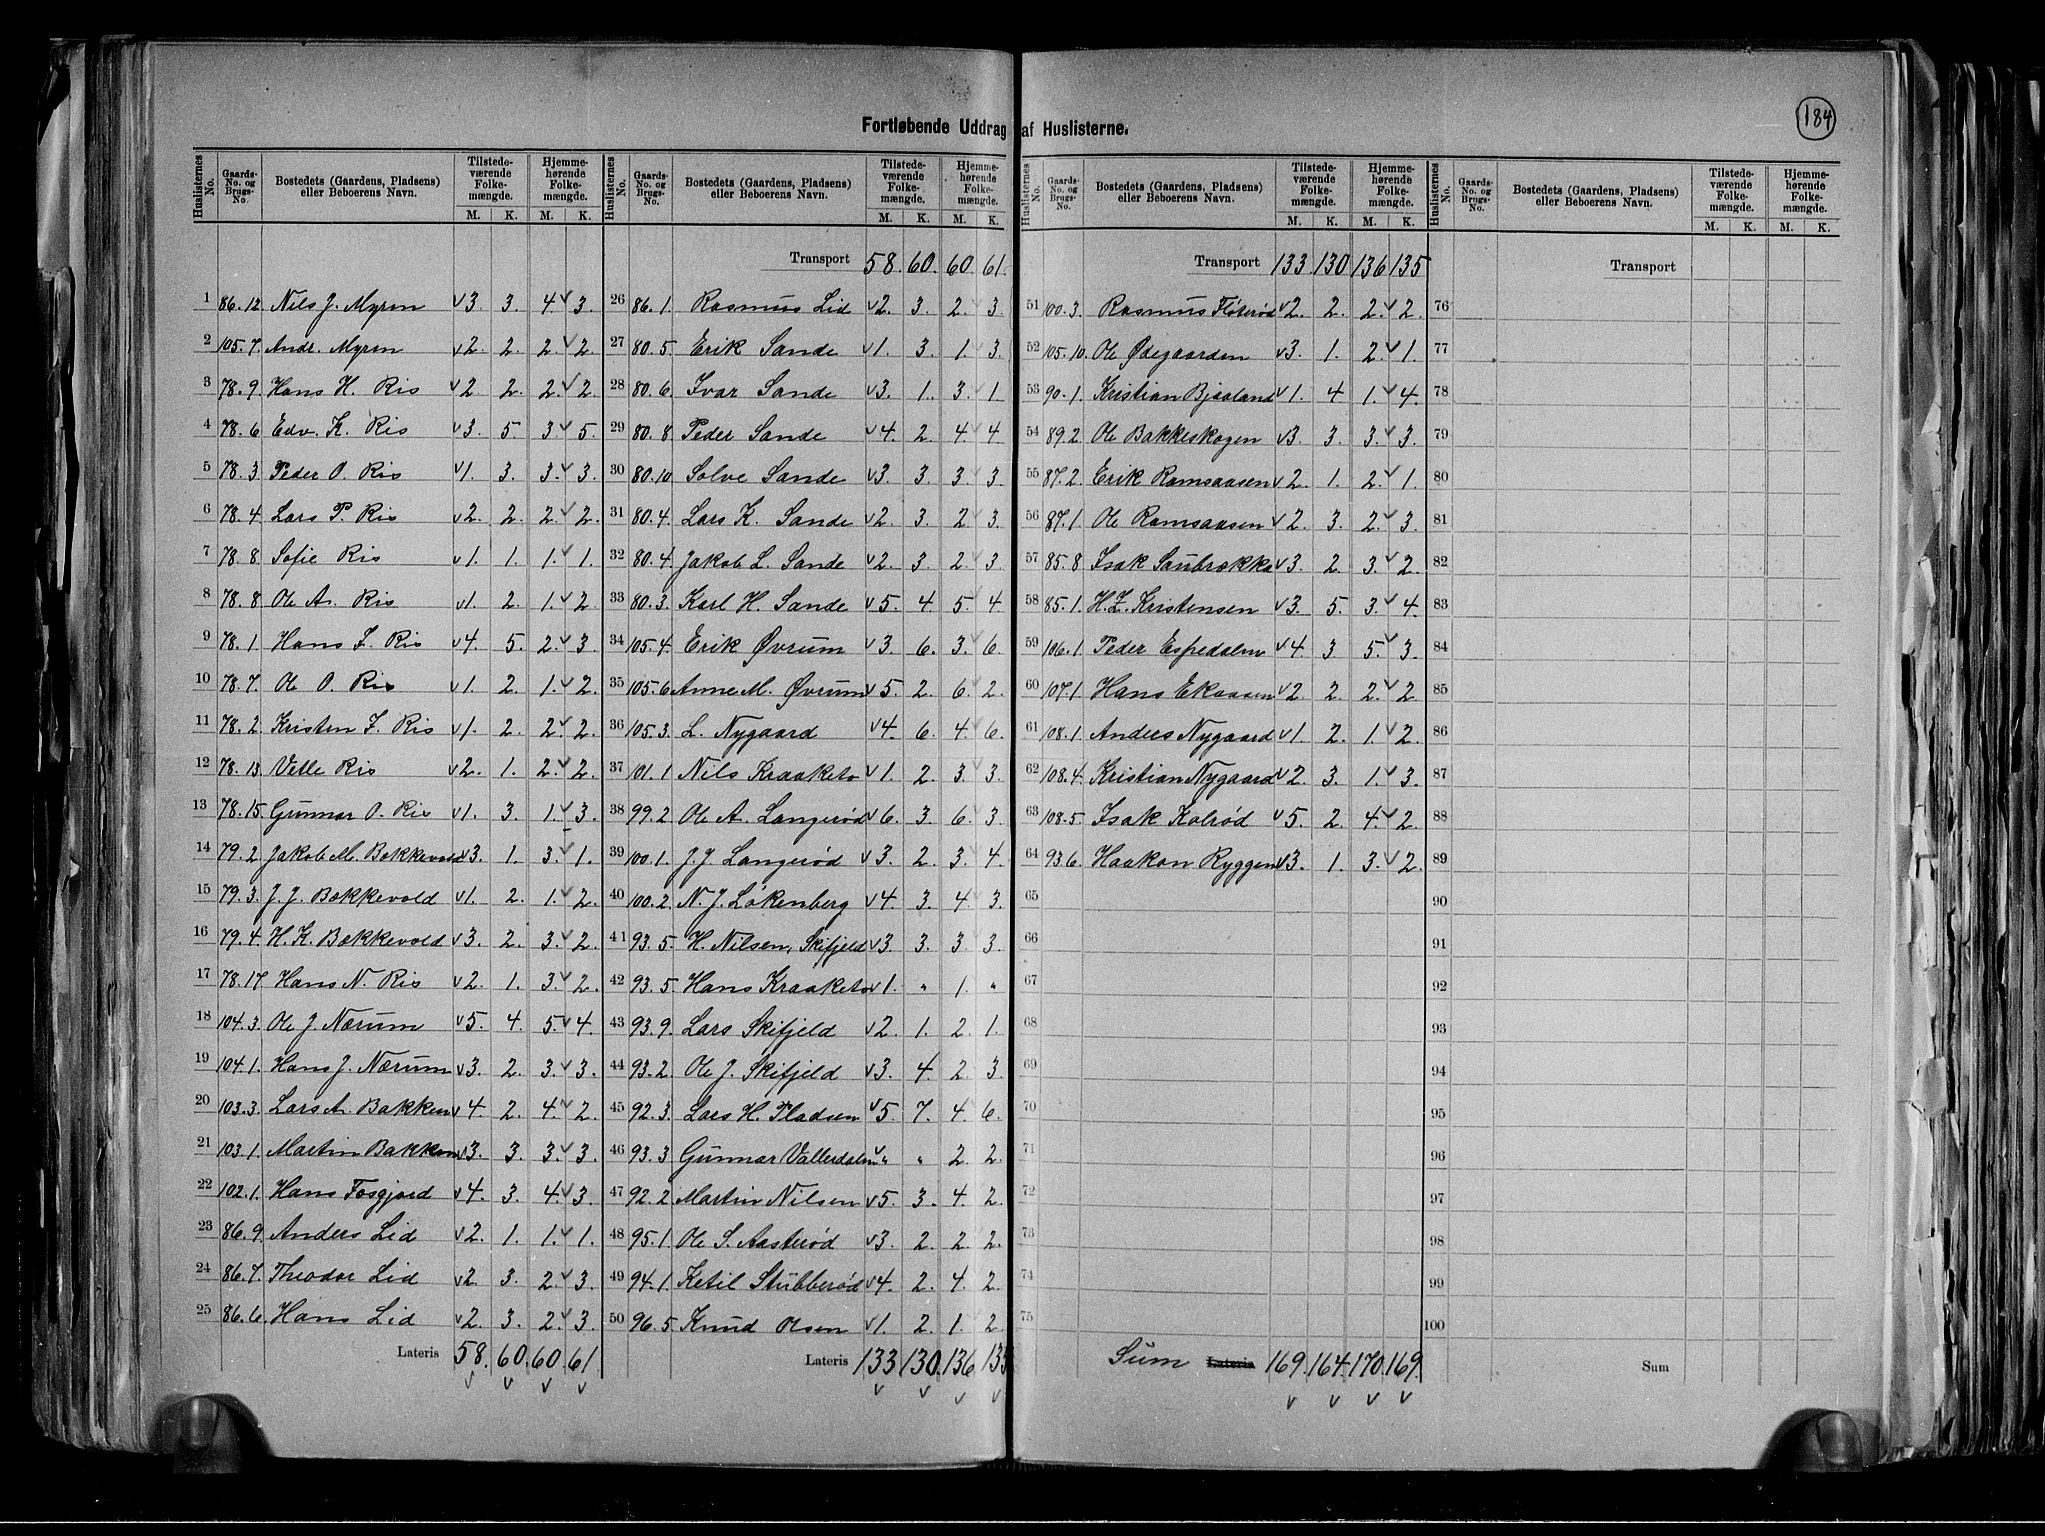 184
Fortløbende Uddrag af Huslisterne.
Huslisternes No. Gaards-No. og Brugs-No. Bostedets (Gaardens, Pladsens) eller Beboerens Navn. Tilstedeværende Folkemængde. M. K. Hjemmehørende Folkemængde. M. K.
1 86.12 Nils J. Myren 3. 3. 4. 3.
2 105.7. Andr. Myren 2. 2. 2. 2.
3 78.9. Hans H. Ris 2 2. 2. 2.
4 78.6 Edv. K. Ris 3. 5. 3. 5.
5 78.3 Peder O. Ris 1. 3. 3. 3.
6 78.4 Lars P. Ris 2. 2. 2. 2.
7 78.8. Sofie Ris 1. 1. 1. 1.
8 78.8. Ole A. Ris 1. 2. 1. 2.
9 78.1 Hans L. Ris 4. 5. 2. 3.
10 78.7. Ole O. Ris 1. 2. 1. 2.
11 78.2. Kristen L. Ris 1. 2. 2. 2.
12 78.13 Vetle Ris 2. 1. 2. 2.
13 78.15. Gunnar O. Ris 1. 3. 1. 3.
14 79.2 Jakob M. Bakkevold 3. 1. 3. 1.
15 79.3. J. J. Bækkevold 1. 2. 1. 2.
16 79.4. H. K. Bækkevold 3. 2. 3. 2.
17 78.17 Hans N. Ris 2. 1. 3. 2.
18 104.3. Ole J. Nærum 5. 4. 5. 4.
19 104.1. Hans J. Nærum 3. 2. 3. 3.
20 103.3 Lars A. Bakken 4. 2. 4. 2.
21 103.1 Martin Bakken 3. 3. 3. 3.
22 102.1. Hans Fosgjord 4. 3. 4. 3.
23 86.9. Anders Lid 2. 1. 1. 1.
24 86.7. Theodor Lid 2. 3. 2. 3.
25 86.6. Hans Lid 2. 3. 2. 3.
Lateris 58. 60. 60. 61.
Huslisternes No. Gaards-No. og Brugs-No. Bostedets (Gaardens, Pladsens) eller Beboerens Navn. Tilstedeværende Folkemængde. M. K. Hjemmehørende Folkemængde. M. K.
Transport 58. 60. 60. 61.
26 86.1. Rasmus Lid 2. 3. 2. 3.
27 80.5. Erik Sande 1. 3. 1. 3.
28 80.6. Ivar Sande 3. 1. 3. 1
29 80.8. Peder Sande 4. 2. 4. 4.
30 80.10. Solve Sande 3. 3. 3. 3
31 80.4. Lars K. Sande 2. 3. 2. 3.
32 80.4. Jakob L. Sande 2. 3. 2. 3.
33 80.3. Karl H. Sande 5. 4. 5. 4
34 105.4. Erik Øvrum 3. 6. 3. 6.
35 105.6 Anne M. Øvrum 5. 2. 6. 2.
36 105.3. L. Nygaard 4. 6. 4. 6.
37 101.1 Nils Kraaketo 1. 2. 3. 3.
38 99.2 Ole A. Langerød 6. 3. 6. 3.
39 100.1. J. J. Langerød 3. 2. 3. 4.
40 100.2. N. J. Løkenberg 4. 3. 4. 3.
41 93.5. H. Nilsen, Skifjeld 3 3. 3. 3.
42 93.5. Hans Kraaketo 1. " 1. "
43 93.9. Lars Skifjeld 2. 1. 2. 1.
44 93.2. Ole J. Skifjeld 3. 4. 2. 3.
45 92.3. Lars H. Pladsen 5. 7. 4. 6.
46 93.3 Gunnar Vallerdalen " " 2. 2.
47 92.2. Martin Nilsen 5. 3. 4. 2.
48 95.1. Ole S. Aasterød 3. 2. 2. 2.
49 94.1. Ketil Stubberød 4. 2. 4. 2.
50 96.5. Knud Olsen 1. 2. 1. 2.
Lateris 133. 130. 136. 135
Huslisternes No. Gaards-No. og Brugs-No. Bostedets (Gaardens, Pladsens) eller Beboerens Navn. Tilstedeværende Folkemængde. M. K. Hjemmehørende Folkemængde. M. K.
Transport 133. 130. 136. 135
51 100.3. Rasmus Fløterød 2. 2. 2. 2.
52 105.10. Ole Ødegaarden 3. 1. 2. 1.
53 90.1. Kristian Bjaaland 1. 4 1. 4.
54 89.2. Ole Bakkeskogen 3. 3. 3. 3.
55 87.2. Erik Ramsaasen 2. 1. 2. 1.
56 87.1. Ole Ramsaasen 2. 3. 2. 3.
57 85.8 Isak Saubrækka 3. 2. 3. 2.
58 85.1. H. Z. Kristensen 3. 5. 3. 4
59 106.1. Peder Espedalen 4. 3 5. 3.
60 107.1 Hans Ekaasen 2. 2 2. 2
61 108.1. Anders Nygaard 1. 2. 1. 2.
62 108.4. Kristian Nygaard 2. 3. 1. 3.
63 108.5. Isak Kolrød 5. 2. 4. 2.
64 93.6. Haakon Ryggen 3. 1. 3. 2.
65
66
67
68
69
70
71
72
73
74
75
Sum Lateris 169. 164. 170. 169.
Huslisternes No. Gaards-No. og Brugs-No. Bostedets (Gaardens, Pladsens) eller Beboerens Navn. Tilstedeværende Folkemængde. M. K. Hjemmehørende Folkemængde. M. K.
Transport
76
77
78
79
80
81
82
83
84
85
86
87
88
89
90
91
92
93
94
95
96
97
98
99
100
Sum